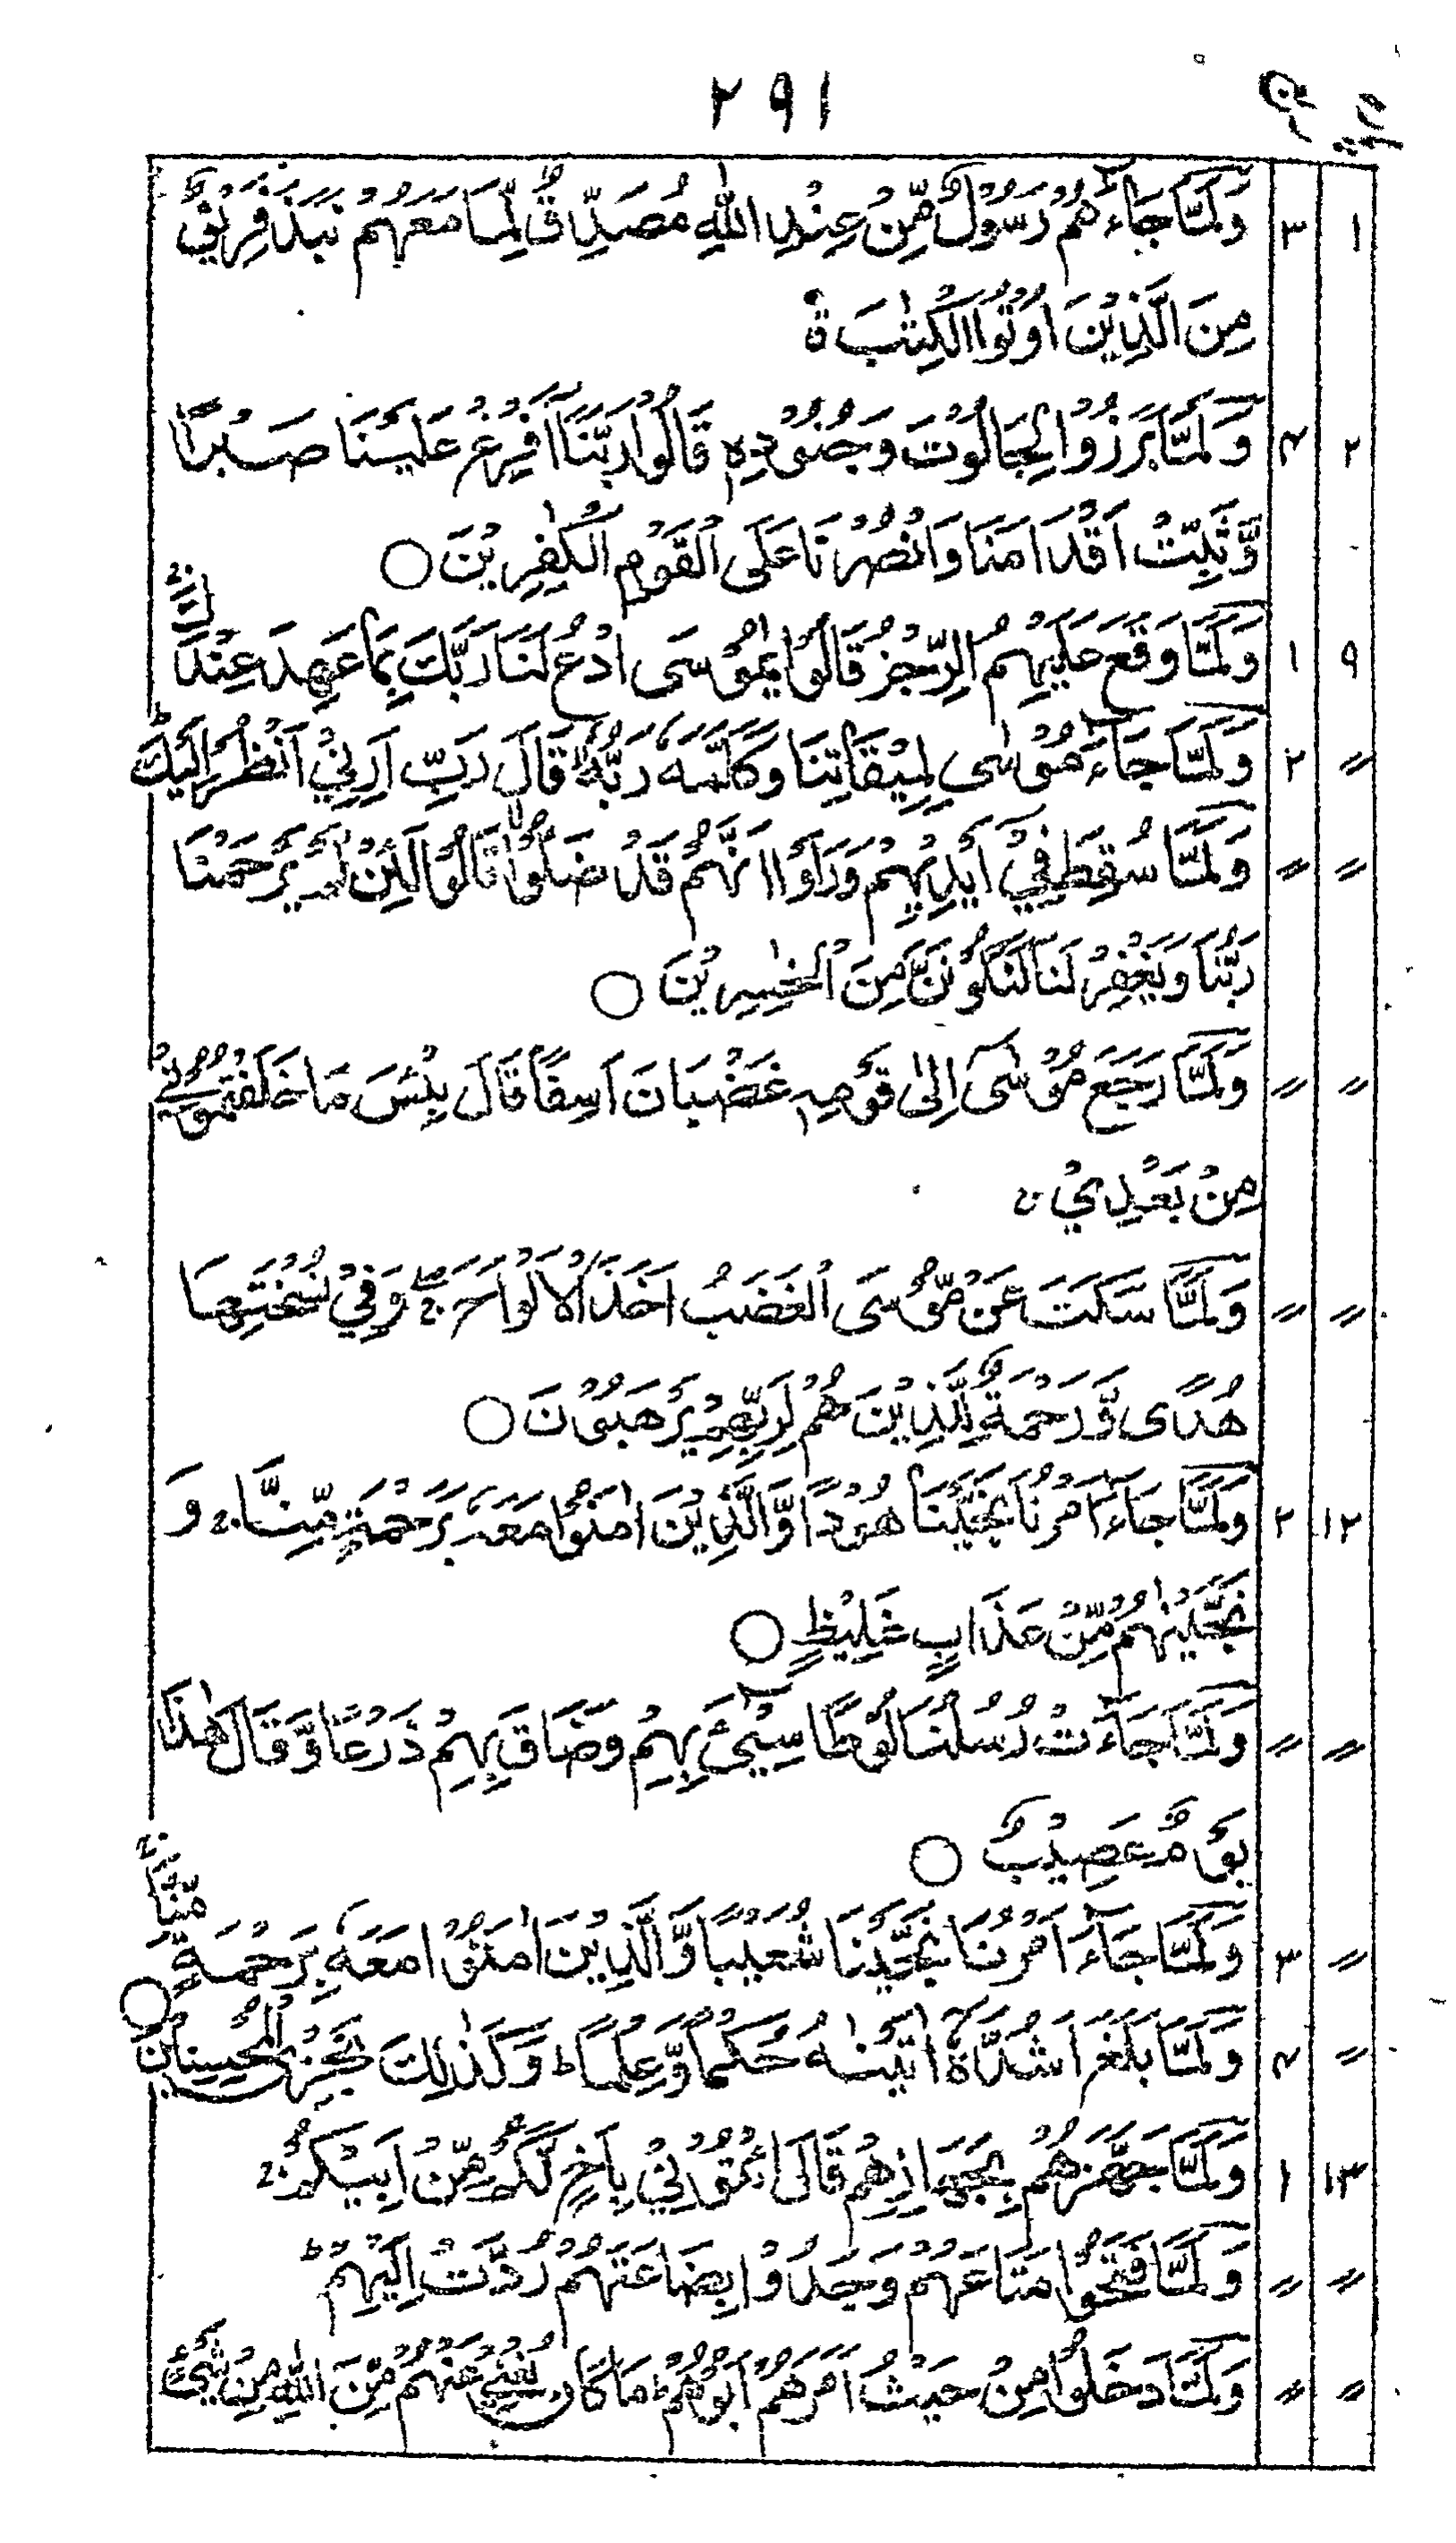 ٢٩١
١ ٣ وَلَمَّا جَآءَهُمْ رَسُوْلٌ مِّنْ عِنْدِ اللّٰهِ مُصَدِّقٌ لِّمَا مَعَهُمْ نَبَذَ فَرِيْقٌ
مِنَ الَّذِيْنَ اُوْتُوا الْكِتٰبَ ۙ
٢ ٤ وَلَمَّا بَرَزُوْا لِجَالُوْتَ وَجُنُوْدِهٖ قَالُوْا رَبَّنَآ اَفْرِغْ عَلَيْنَا صَبْرًا
وَّثَبِّتْ اَقْدَامَنَا وَانْصُرْنَا عَلَى الْقَوْمِ الْكٰفِرِيْنَ ○
٩ ١ وَلَمَّا وَقَعَ عَلَيْهِمُ الرِّجْزُ قَالُوْا يٰمُوْسَى ادْعُ لَنَا رَبَّكَ بِمَا عَهِدَ عِنْدَكَ ۚ
〃 ٢ وَلَمَّا جَآءَ مُوْسٰى لِمِيْقَاتِنَا وَكَلَّمَهٗ رَبُّهٗ ۙ قَالَ رَبِّ اَرِنِيْٓ اَنْظُرْ اِلَيْكَ ؕ
〃 〃 وَلَمَّا سُقِطَ فِيْٓ اَيْدِيْهِمْ وَرَاَوْا اَنَّهُمْ قَدْ ضَلُّوْا ۙ قَالُوْا لَئِنْ لَّمْ يَرْحَمْنَا
رَبُّنَا وَيَغْفِرْ لَنَا لَنَكُوْنَنَّ مِنَ الْخٰسِرِيْنَ ○
〃 〃 وَلَمَّا رَجَعَ مُوْسٰٓى اِلٰى قَوْمِهٖ غَضْبَانَ اَسِفًا قَالَ بِئْسَ مَا خَلَفْتُمُوْنِيْ
مِنْ بَعْدِيْ ۚ
〃 〃 وَلَمَّا سَكَتَ عَنْ مُّوْسَى الْغَضَبُ اَخَذَ الْاَلْوَاحَ ۖۚ وَفِيْ نُسْخَتِهَا
هُدًى وَّرَحْمَةٌ لِّلَّذِيْنَ هُمْ لِرَبِّهِمْ يَرْهَبُوْنَ ○
١٢ ٢ وَلَمَّا جَآءَ اَمْرُنَا نَجَّيْنَا هُوْدًا وَّالَّذِيْنَ اٰمَنُوْا مَعَهٗ بِرَحْمَةٍ مِّنَّا ۚ وَ
نَجَّيْنٰهُمْ مِّنْ عَذَابٍ غَلِيْظٍ ○
〃 〃 وَلَمَّا جَآءَتْ رُسُلُنَا لُوْطًا سِيْٓئَ بِهِمْ وَضَاقَ بِهِمْ ذَرْعًا وَّقَالَ هٰذَا
يَوْمٌ عَصِيْبٌ ○
〃 ٣ وَلَمَّا جَآءَ اَمْرُنَا نَجَّيْنَا شُعَيْبًا وَّالَّذِيْنَ اٰمَنُوْا مَعَهٗ بِرَحْمَةٍ مِّنَّا ۚ
〃 ٤ وَلَمَّا بَلَغَ اَشُدَّهٗٓ اٰتَيْنٰهُ حُكْمًا وَّعِلْمًا ؕ وَكَذٰلِكَ نَجْزِى الْمُحْسِنِيْنَ ○
١٣ ١ وَلَمَّا جَهَّزَهُمْ بِجَهَازِهِمْ قَالَ ائْتُوْنِيْ بِاَخٍ لَّكُمْ مِّنْ اَبِيْكُمْ ۚ
〃 〃 وَلَمَّا فَتَحُوْا مَتَاعَهُمْ وَجَدُوْا بِضَاعَتَهُمْ رُدَّتْ اِلَيْهِمْ ؕ
〃 〃 وَلَمَّا دَخَلُوْا مِنْ حَيْثُ اَمَرَهُمْ اَبُوْهُمْ ؕ مَا كَانَ يُغْنِيْ عَنْهُمْ مِّنَ اللّٰهِ مِنْ شَيْءٍ